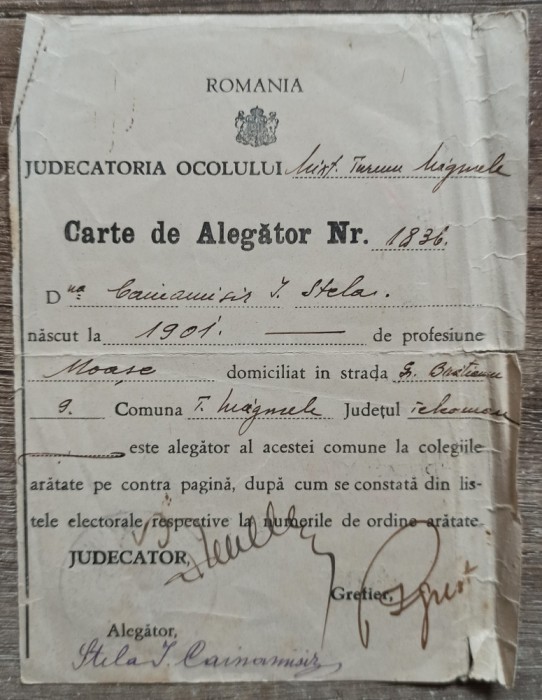 ROMANIA
JUDECATORIA OCOLULUI Mixt. Turnu Măgurele
Carte de Alegător Nr. 1836.
D na Cainamisir I. Stela.
născut la 1901. de profesiune
Moașe domiciliat in strada
9. Comuna T. Măgurele Județul
este alegător al acestei comune la colegiile
arătate pe contra pagină, după cum se constată din lis-
tele electorale respective la numerile de ordine arătate
JUDECATOR,
Grefier,
Alegător,
Stela I. Cainamisir